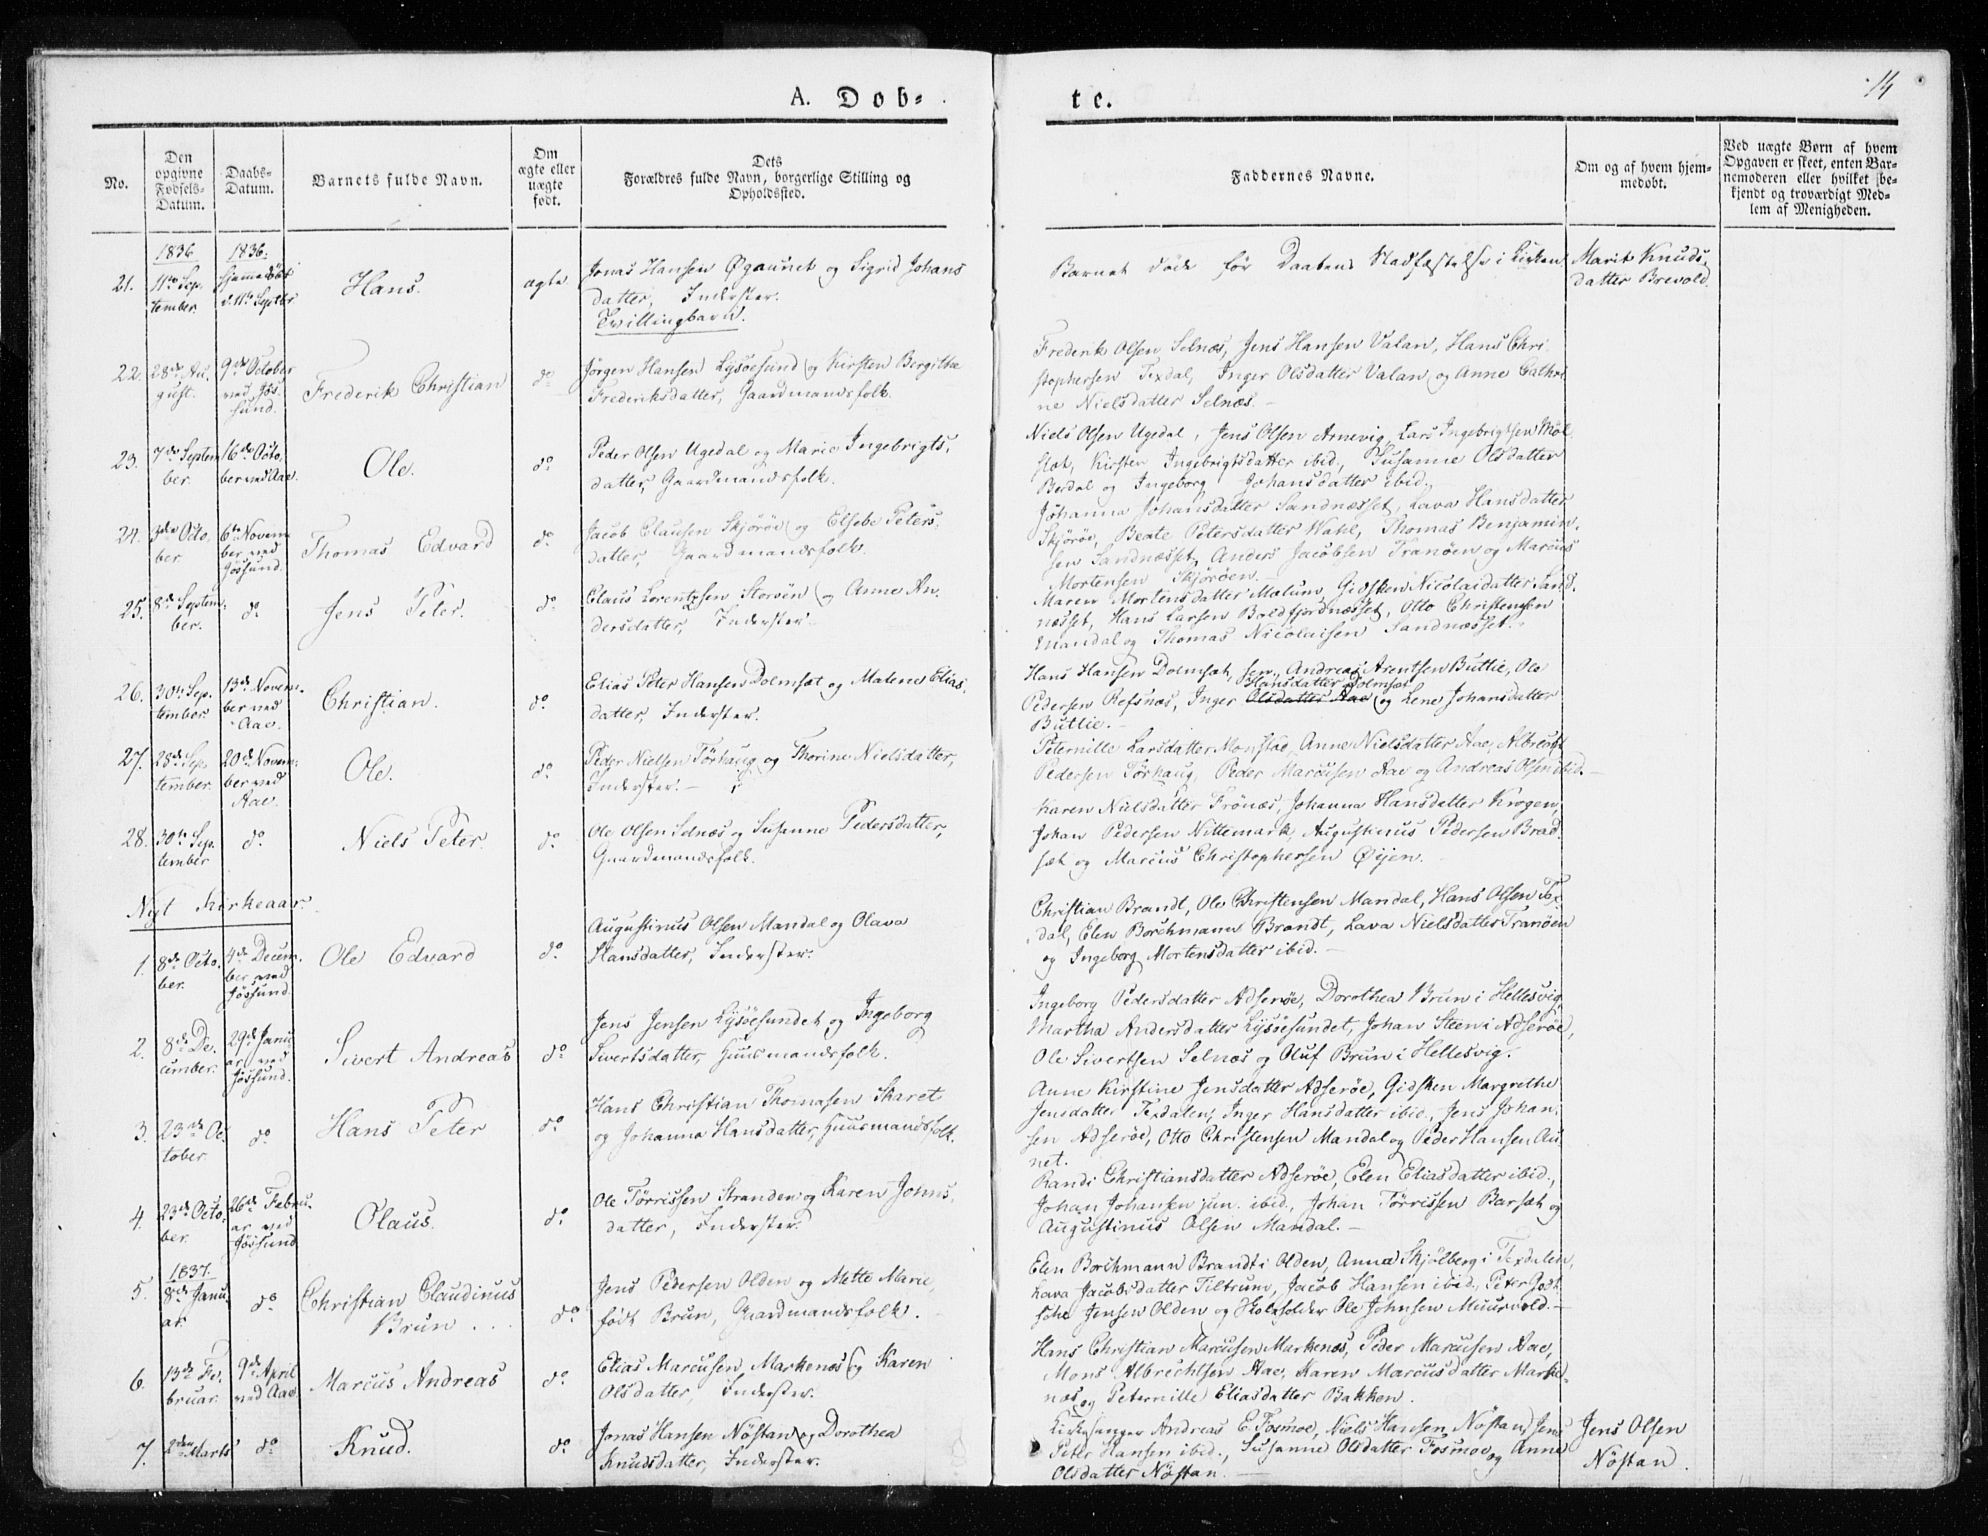 14
A. Døb-
te.
No.
Den opgivne Fødsels-Datum.
Daabs-Datum.
Barnets fulde Navn.
Om ægte eller uægte født.
Dets Forældres fulde Navn, borgerlige Stilling og Opholdssted.
Faddernes Navne.
Om og af hvem hjemmedøbt.
Ved uægte Børn af hvem Opgaven er skeet, enten Barnemoderen eller hvilket bekjendt og troværdigt Medlem af Menigheden.
1836
1836.
21. 11te September. Hjemmedøbt d. 11te Septbr Hans. ægte
Jonas Hansen Øgaunet og Sigrid Johans
datter, Inderster.
Tvillingbarn.
Barnet døde før Daabens Stadfæstelse i Kirken
Marit Knuds-
datter Brevold.
22. 28de August. 9de October ved Jøssund. Frederik Christian do
Jørgen Hansen Lysøesund og Kirsten Bergitha
Frederiksdatter, Gaardmandsfolk.
Frederik Olsen Selnæs, Jens Hansen Valan, Hans Chri-
stophersen Texdal, Inger Olsdatter Valan og Anne Cathri
ne Nielsdatter Selnæs.
23. 7de September. 16de October ved Aae. Ole. do
Peder Olsen Ugedal og Marie Ingebrigts,
datter, Gaardmandsfolk.
Niels Olsen Ugedal, Jens Olsen Arnevig, Lars Ingebrigtsen Møl
slæt, Kirsten Ingebrigtsdatter ibid., Susanne Olsdatter
Berdal og Ingeborg Johansdatter ibid.
24. 3die October. 6te November ved Jøssund. Thomas Edvard do
Jacob Clausen Skjørøe og Elsebe Peters,
datter, Gaardmandsfolk.
Johanna Johansdatter Sandnæsset, Lava Hansdatter
Skjørøe, Beate Petersdatter Wahl, Thomas Benjamin-
sen Sandnæsset, Anders Jacobsen Tranøen og Marcus
Mortensen Skjørøen.
25. 8de September. do Jens Peter. do
Claus Lorentzen Storøen og Anne An-
dersdatter, Inderster.
Maren Mortensdatter Mælum, Gidsken Nicolaidatter Sand,
næsset, Hans Larsen Bredfjordnæsset, Otto Christensen
Mandal og Thomas Nicolaisen Sandnæsset.
26. 30te September. 13de November ved Aae. Christian. do
Elias Peter Hansen Dolmsæt og Malene Elias,
datter, Inderster.
Hans Hansen Dolmsæt, sen., Andreas Arentsen Buttie, Ole
Hansdatter Dolmsæt
Pedersen Refsnæs, Inger Olsdatter Aae og Lene Johansdatter
Buttie.
27. 28de September. 20de November ved Aae. Ole. do
Peder Nielsen Tørhaug og Thorine Nielsdatter,
Inderster.
Peternille Larsdatter Monstae, Anne Nielsdatter Aae, Albrecht
Pedersen Tørhaug, Peder Marcusen Aae og Andreas Olsen ibid.
28. 30te September do Niels Peter. do
Ole Olsen Selnæs og Susanne Pedersdatter,
Gaardmandsfolk.
Karen Nielsdatter Frønæs, Johanna Hansdatter Krogen,
Johan Pedersen Nittemark, Augustinus Pedersen Brad
sæt og Marcus Christophersen Øijen.
Nyt Kirkeaar.
1. 8de October. 4de December ved Jøssund. Ole Edvard do
Augustinus Olsen Mandal og Olava
Hansdatter, Inderster.
Christian Brandt, Ole Christensen Mandal, Hans Olsen Tex
dal, Elen Borchmann Brandt, Lava Nielsdatter Tranøen
og Ingeborg Mortensdatter ibid.
2. 8de December. 29de Januar ved Jøssund. Sivert Andreas do
Jens Jensen Lysøesundet og Ingeborg
Sivertsdatter, Huusmandsfolk.
Ingeborg Pedersdatter Adserøe, Dorothea Brun i Hellesvig,
Martha Andersdatter Lysøesundet, Johan Steen i Adserøe,
Ole Sivertsen Selnæs og Oluf Brun i Hellesvig.
3. 23de October. do Hans Peter do
Hans Christian Thomasen Skaret
og Johanna Hansdatter, Huusmandsfolk.
Anne Kirstine Jensdatter Adserøe, Gidsken Margrethe
Jensdatter Texdalen, Inger Hansdatter ibid., Jens Johan-
sen Adserøe, Otto Christensen Mandal og Peder Hansen Au
net.
4. 23de October. 26de Februar ved Jøssund Olaus. do
Ole Tørrissen Stranden og Karen Johns,
datter, Inderster.
Randi Christiansdatter Adserøe, Elen Eliasdatter ibid.,
Johan Johansen jun. ibid., Johan Tørrissen Barsæt og
Augustinus Olsen Mandal.
1837.
5. 8de Januar. do Christian Claudinus Brun do
Jens Pedersen Olden og Mette Marie,
født Brun, Gaardmandsfolk.
Elen Borchmann Brandt i Olden, Anna Skjølberg i Texdalen,
Lava Jacobsdatter Tiltrum, Jacob Hansen ibid., Peter Godt
sche Jensen Olden og Skoleholder Ole Johnsen Muurvold.
6. 13de Februar. 9de April ved Aae. Marcus Andreas do
Elias Marcusen Markenæs og Karen
Olsdatter, Inderster.
Hans Christian Marcusen Markenæs, Peder Marcusen Aae,
Mons Albrechtsen Aae, Karen Marcusdatter Marke-
næs og Peternille Eliasdatter Bakken.
7. 2den Marts do Knud. do
Jonas Hansen Nøstan og Dorothea
Knudsdatter, Inderster.
Kirkesanger Andreas E. Fosmoe, Niels Hansen Nøstan, Jens
Peter Hansen ibid., Susanne Olsdatter Fosmoe og Anne
Olsdatter Nøstan.
Jens Olsen
Nøstan.